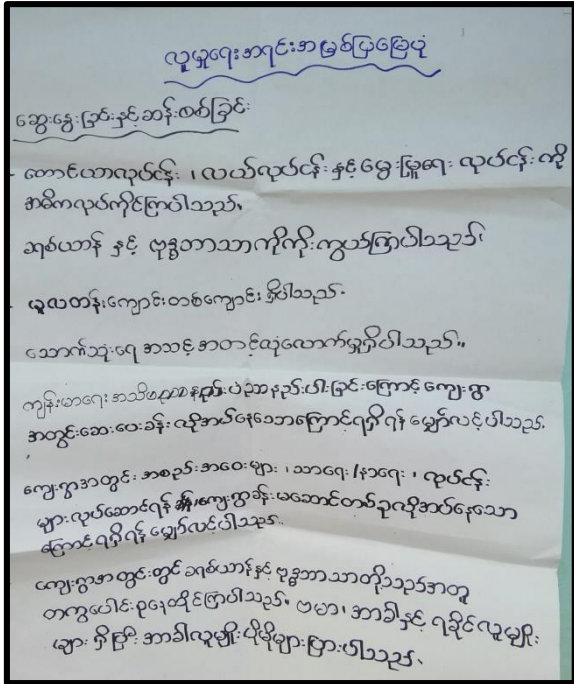 လူမှုရေးအရင်းအမြစ်ပြမြေပုံ
ဆွေးနွေးခြင်းနှင့်ဆန်းစစ်ခြင်း
- တောင်ယာလုပ်ငန်း ၊ လယ်လုပ်ငန်း နှင့် မွေးမြူရေး လုပ်ငန်း ကို
အဓိကလုပ်ကိုင်ကြပါသည်။
ခရစ်ယာန် နှင့် ဗုဒ္ဓဘာသာကိုကိုးကွယ်ကြပါသည်။
- မူလတန်းကျောင်းတစ်ကျောင်း ရှိပါသည်။
သောက်သုံးရေ အသင့်အတင့်လုံလောက်မှုရှိပါသည်။
ကျန်းမာရေး အသိပညာနည်းပါးခြင်းကြောင့် ကျေးရွာ
အတွင်းဆေးပေးခန်း လိုအပ်နေသောကြောင့်ရရှိရန် မျှော်လင့်ပါသည်။
ကျေးရွာအတွင်း အစည်းအဝေးများ ၊ သာရေး/နာရေး ၊ လုပ်ငန်း
များလုပ်ဆောင်ရန် ကျေးရွာခန်းမဆောင်တစ်ခုလိုအပ်နေသော
ကြောင့်ရရှိရန် မျှော်လင့်ပါသည်။
ကျေးရွာအတွင်းတွင် ခရစ်ယာန်နှင့် ဗုဒ္ဓဘာသာတို့သည်အတူ
တကွပေါင်းစုနေထိုင်ကြပါသည်။ ဗမာ ၊ အာခါနှင့် ရခိုင်လူမျိုး
များ ရှိပြီး အာခါလူမျိုး ပိုမိုများပြားပါသည်။